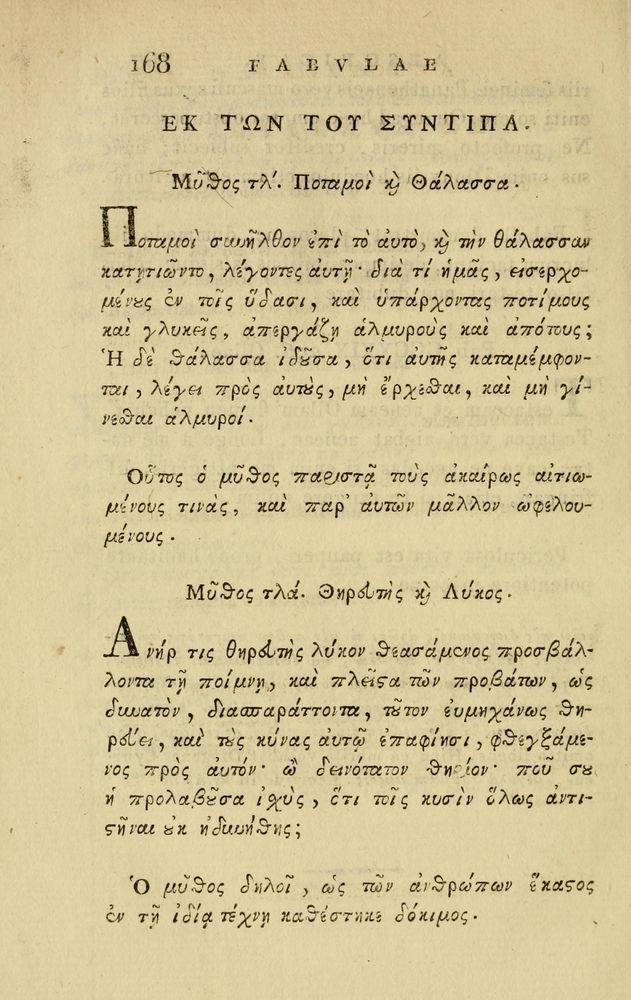 168 FABVLAE
ΕΚ ΤΩΝ ΤΟΥ ΣΥΝΤΙΠΑ.
Μῦθος τλʹ. Ποταμοὶ καὶ Θάλασσα.
Ποταμοὶ συνῆλθον ἐπὶ τὸ αὐτὸ, καὶ τὴν θάλασσαν
κατῃτιῶντο, λέγοντες αὐτῇ· διὰ τί ἡμᾶς, εἰσερχο-
μένους ἐν τοῖς ὕδασι, καὶ ὑπάρχοντας ποτίμους
καὶ γλυκεῖς, ἀπεργάζῃ ἁλμυροὺς καὶ ἀπότους;
Ἡ δὲ θάλασσα ἰδοῦσα, ὅτι αὐτῆς καταμέμφον-
ται, λέγει πρὸς αὐτοὺς, μὴ ἔρχεσθαι, καὶ μὴ γί-
νεσθαι ἁλμυροί.
Οὗτος ὁ μῦθος παριστᾷ τοὺς ἀκαίρως αἰτιω-
μένους τινὰς, καὶ παρ' αὐτῶν μᾶλλον ὠφελου-
μένους.
Μῦθος τλάʹ. Θηρευτὴς καὶ Λύκος.
Ἀνήρ τις θηρευτὴς λύκον θεασάμενος προσβάλ-
λοντα τῇ ποίμνῃ, καὶ πλεῖστα τῶν προβάτων, ὡς
δυνατὸν, διασπαράττοντα, τοῦτον εὐμηχάνως θη-
ρεύει, καὶ τοὺς κύνας αὐτῷ ἐπαφίησι, φθεγξάμε-
νος πρὸς αὐτόν· ὦ δεινότατον θηρίον· ποῦ σου
ἡ προλαβοῦσα ἰσχὺς, ὅτι τοῖς κυσὶν ὅλως ἀντι-
στῆναι οὐκ ἠδυνήθης;
Ὁ μῦθος δηλοῖ, ὡς τῶν ἀνθρώπων ἕκαστος
ἐν τῇ ἰδίᾳ τέχνῃ καθέστηκε δόκιμος.